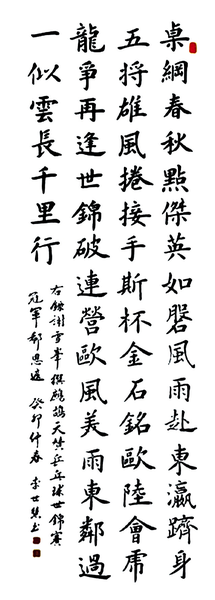 桌綱春秋點傑英如磐風雨赴東瀛躋身
五將雄風捲接手斯杯金石銘歐陸會虎
龍爭再逢世錦破連營歐風美雨東鄰過
一似雲長千里行
右錄謝雪峯撰鷓鴣天乒乓球世錦賽
冠軍郗恩庭 癸卯仲春 李世书